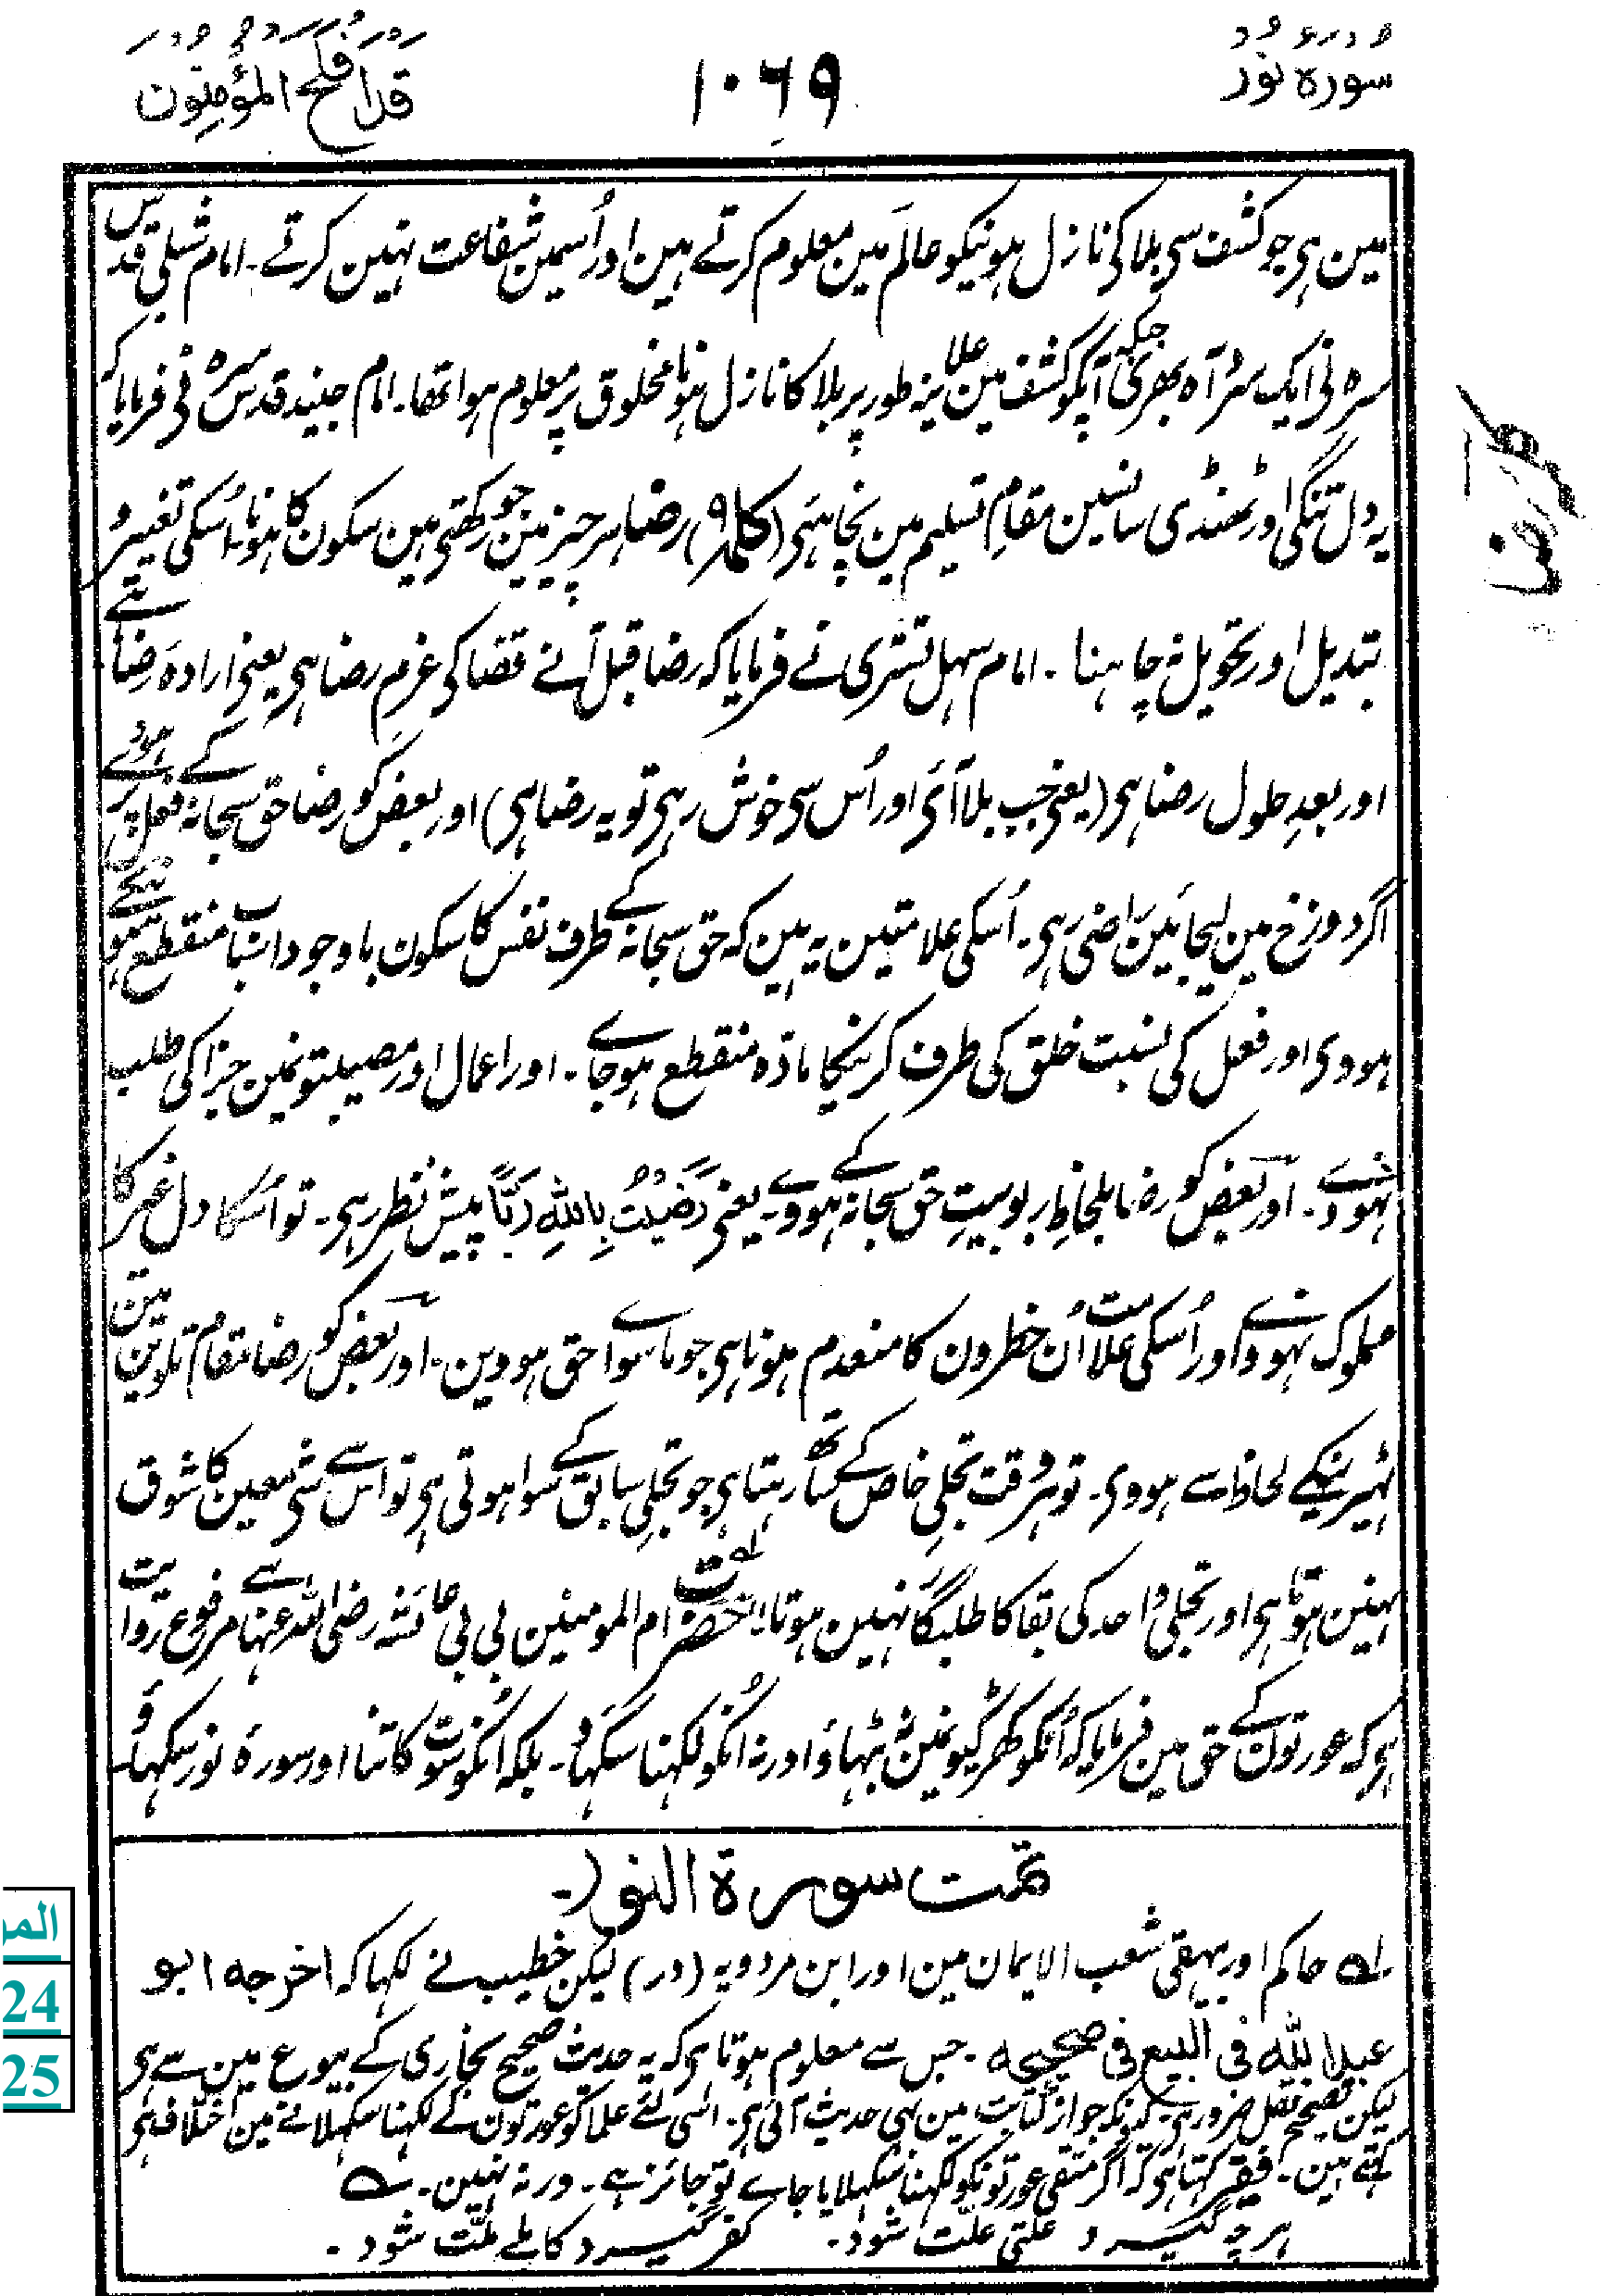 سورہ نور
۱۰۶۹
قد افلح المؤمنون
مین ہی جو کشف سی بلا کی نازل ہونیکو عالَم مین معلوم کرتے ہین اور اُسمین شفاعت نہین کرتے ۔ امام شبلی قدس
سرہ نی ایک سرد آہ بھری جبکہ آپکو کشف مین علانیہ طور پر بلا کا نازل ہونا مخلوق پر معلوم ہوا تھا ۔ امام جنید قدس سرہ نی فرمایا کہ
یہ دل تنگی اور ٹھنڈی سانسین مقامِ تسلیم مین نچاہئی (کلمہ ۹) رضا ہر چیز مین جو رکھتی ہین سکون کا ہونا ۔ اُسکی تغییر و
تبدیل اور تحویل نہ چاہنا ۔ امام سہل تستری نے فرمایا کہ رضا قبل آنے قضا کی عزمِ رضا ہی یعنی ارادہ رضا ہے
اور بعدِ حلول رضا ہی (یعنی جب بلا آئی اور اُس سی خوش رہی تو یہ رضا ہی) اور بعض کو رضا حق سبحانہ کے فعل پر ہووے
اگر دوزخ مین لیجائین راضی رہی ۔ اُسکی علامتین یہ ہین کہ حق سبحانہ کے طرف نفس کا سکون باوجود اسباب منقطع ہو نیکے
ہووی اور فعل کی نسبت خلق کی طرف کرنیکا مادّہ منقطع ہو جاے ۔ اور اعمال اور مصیبتونمین جزا کی طلب
نہووے ۔ اور بعض کو رضا بلحاظِ ربوبیتِ حق سبحانہ کے ہووے ۔ یعنی رَضِیْتُ بِاللّٰہِ رَبًّا پیشِ نظر رہی ۔ تو اُسکا دل غیر کا
مملوک نہووے اور اُسکی علامت اُن خطرون کا منعدم ہونا ہی جو ماسواے حق ہووین ۔ اور بعض کو رضا مقام تلوین مین
ٹہیرنیکے لحاظ سے ہووی ۔ تو ہر وقت تجلیِ خاص کے ساتھ رہتا ہی جو تجلیِ سابق کے سوا ہوتی ہی تو اُسے شی معین کا شوق
نہین ہوتا ہی اور تجلی واحد کی بقا کا طلبگار نہین ہوتا ۔ حضرت ام المومنین بی بی عائشہ رضی اللہ عنہا سے مرفوع روایت
ہی کہ عورتون کے حق مین فرمایا کہ اُنکو کھڑکیونمین نہ بٹہاؤ اور نہ اُنکو لکہنا سکہاؤ ۔ بلکہ اُنکو سوت کاتنا اور سورہ نور سکہاؤ
رضا
تمت سورۃ النور ۔
لہ حاکم اور بیہقی شعب الایمان مین اور ابن مردویہ (در) لیکن خطیب نے لکہا کہ اخرجہ ابو
عبد اللہ فی البیع فی صحیحہ ۔ جس سے معلوم ہوتا ہی کہ یہ حدیث صحیح بخاری کے بیوع مین سے ہی
لیکن تصحیح نقل ضرور ہی ۔ کیونکہ جواز کتابت مین بہی حدیث آئی ہی ۔ اسی لئے علما کو عورتون کے لکہنا سکہلانے مین اختلاف ہی
کہتے ہین ۔ فقیر کہتا ہی کہ اگر متقی عورتونکو لکہنا سکہلایا جاے تو جائز ہے ۔ ورنہ نہین ۔ ؎
ہرچہ گیرد علتی علّت شود ۔ کفر گیرد کاملے ملّت شود ۔
24
25